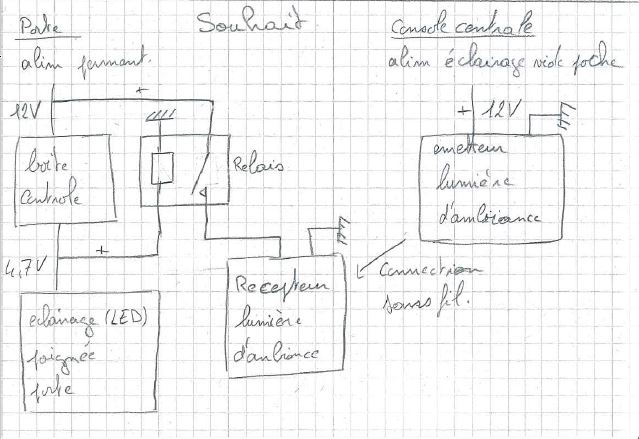 Souhait
Porte
alim permant.
+
12V
boîte
controle
Relais
+
4,7V
eclairage (LED)
poignée
porte
Recepteur
lumière
d'ambiance
Console centrale
alim éclairage vide poche
+ 12V
emetteur
lumière
d'ambiance
Connection
sans fil.